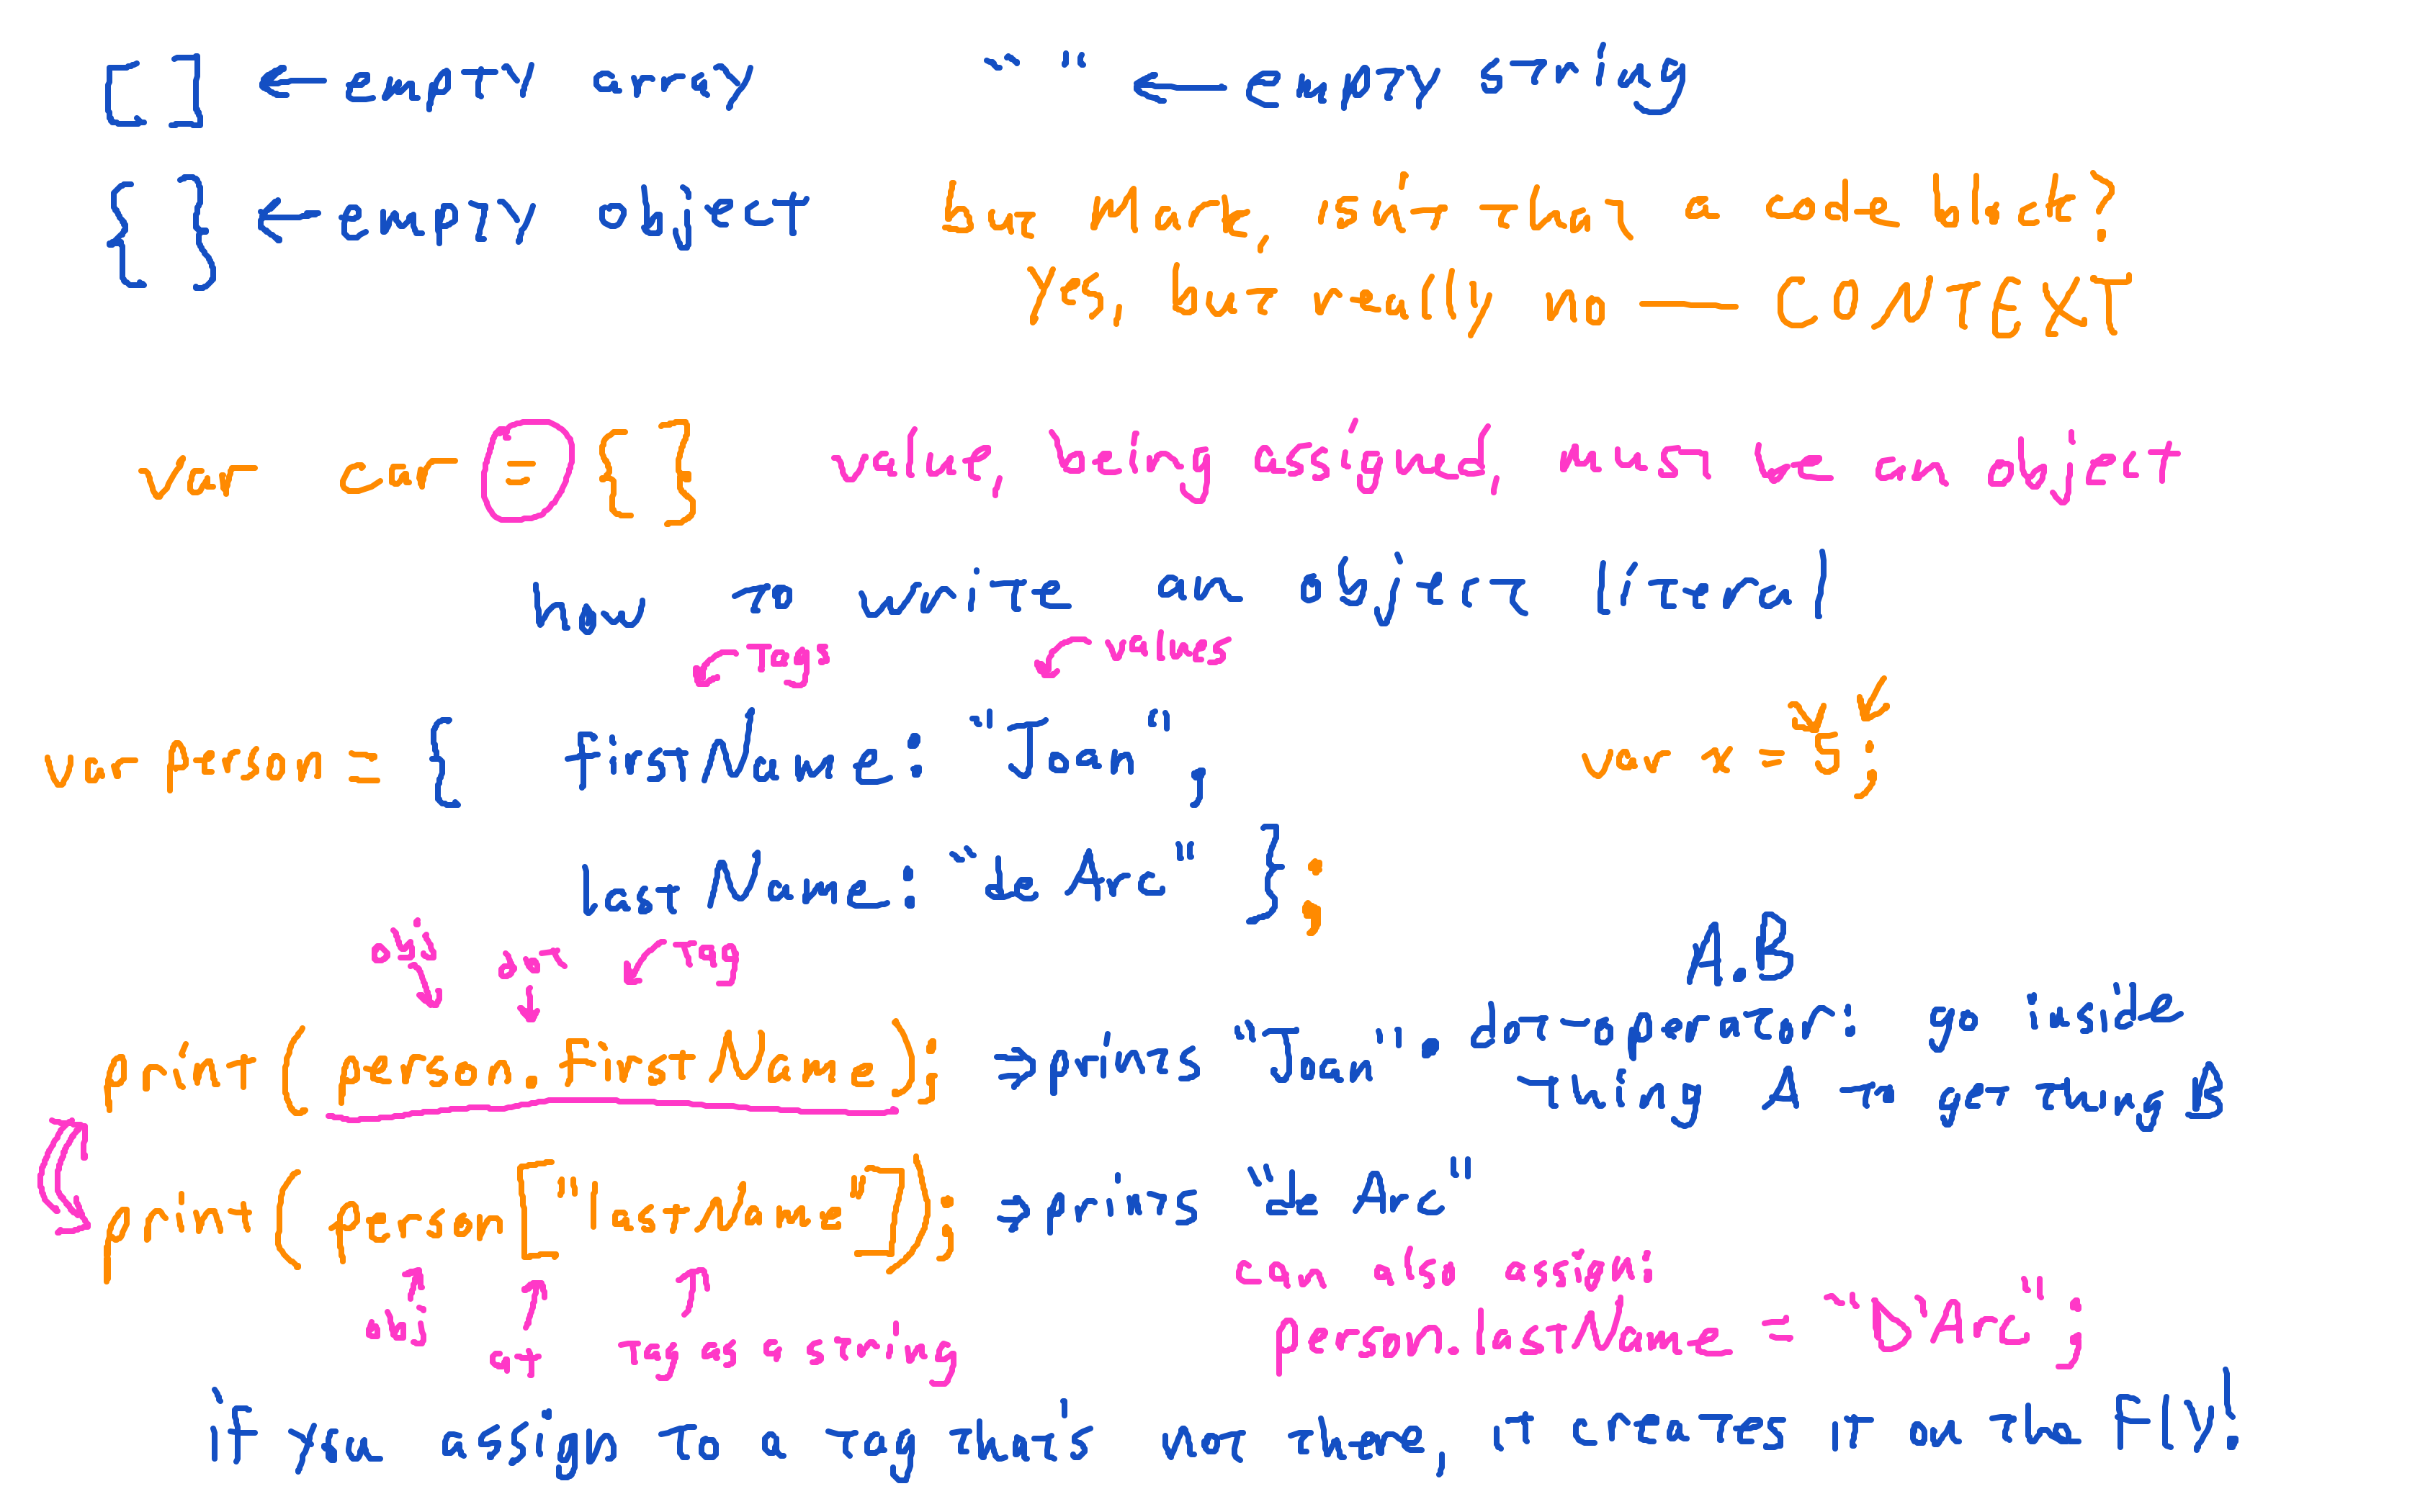 [ ] ← empty array " " ← empty string
{ } ← empty object but Mark, isn't that a code block?
Yes, but really no — CONTEXT
var car = { } value, being assigned, must be an object
how to write an object literal
tags values
var person = { firstName: "Joan", var x = 5;
lastName: "de Arc" };
obj dot tag A.B
print(person.firstName); ⇒ prints "Joan". dot-operator: go inside
thing A to get thing B
print(person["lastName"]); ⇒ prints "de Arc"
can also assign:
obj at tag as a string person.lastName = "D'Arc";
if you assign to a tag that's not there, it creates it on the FLY!